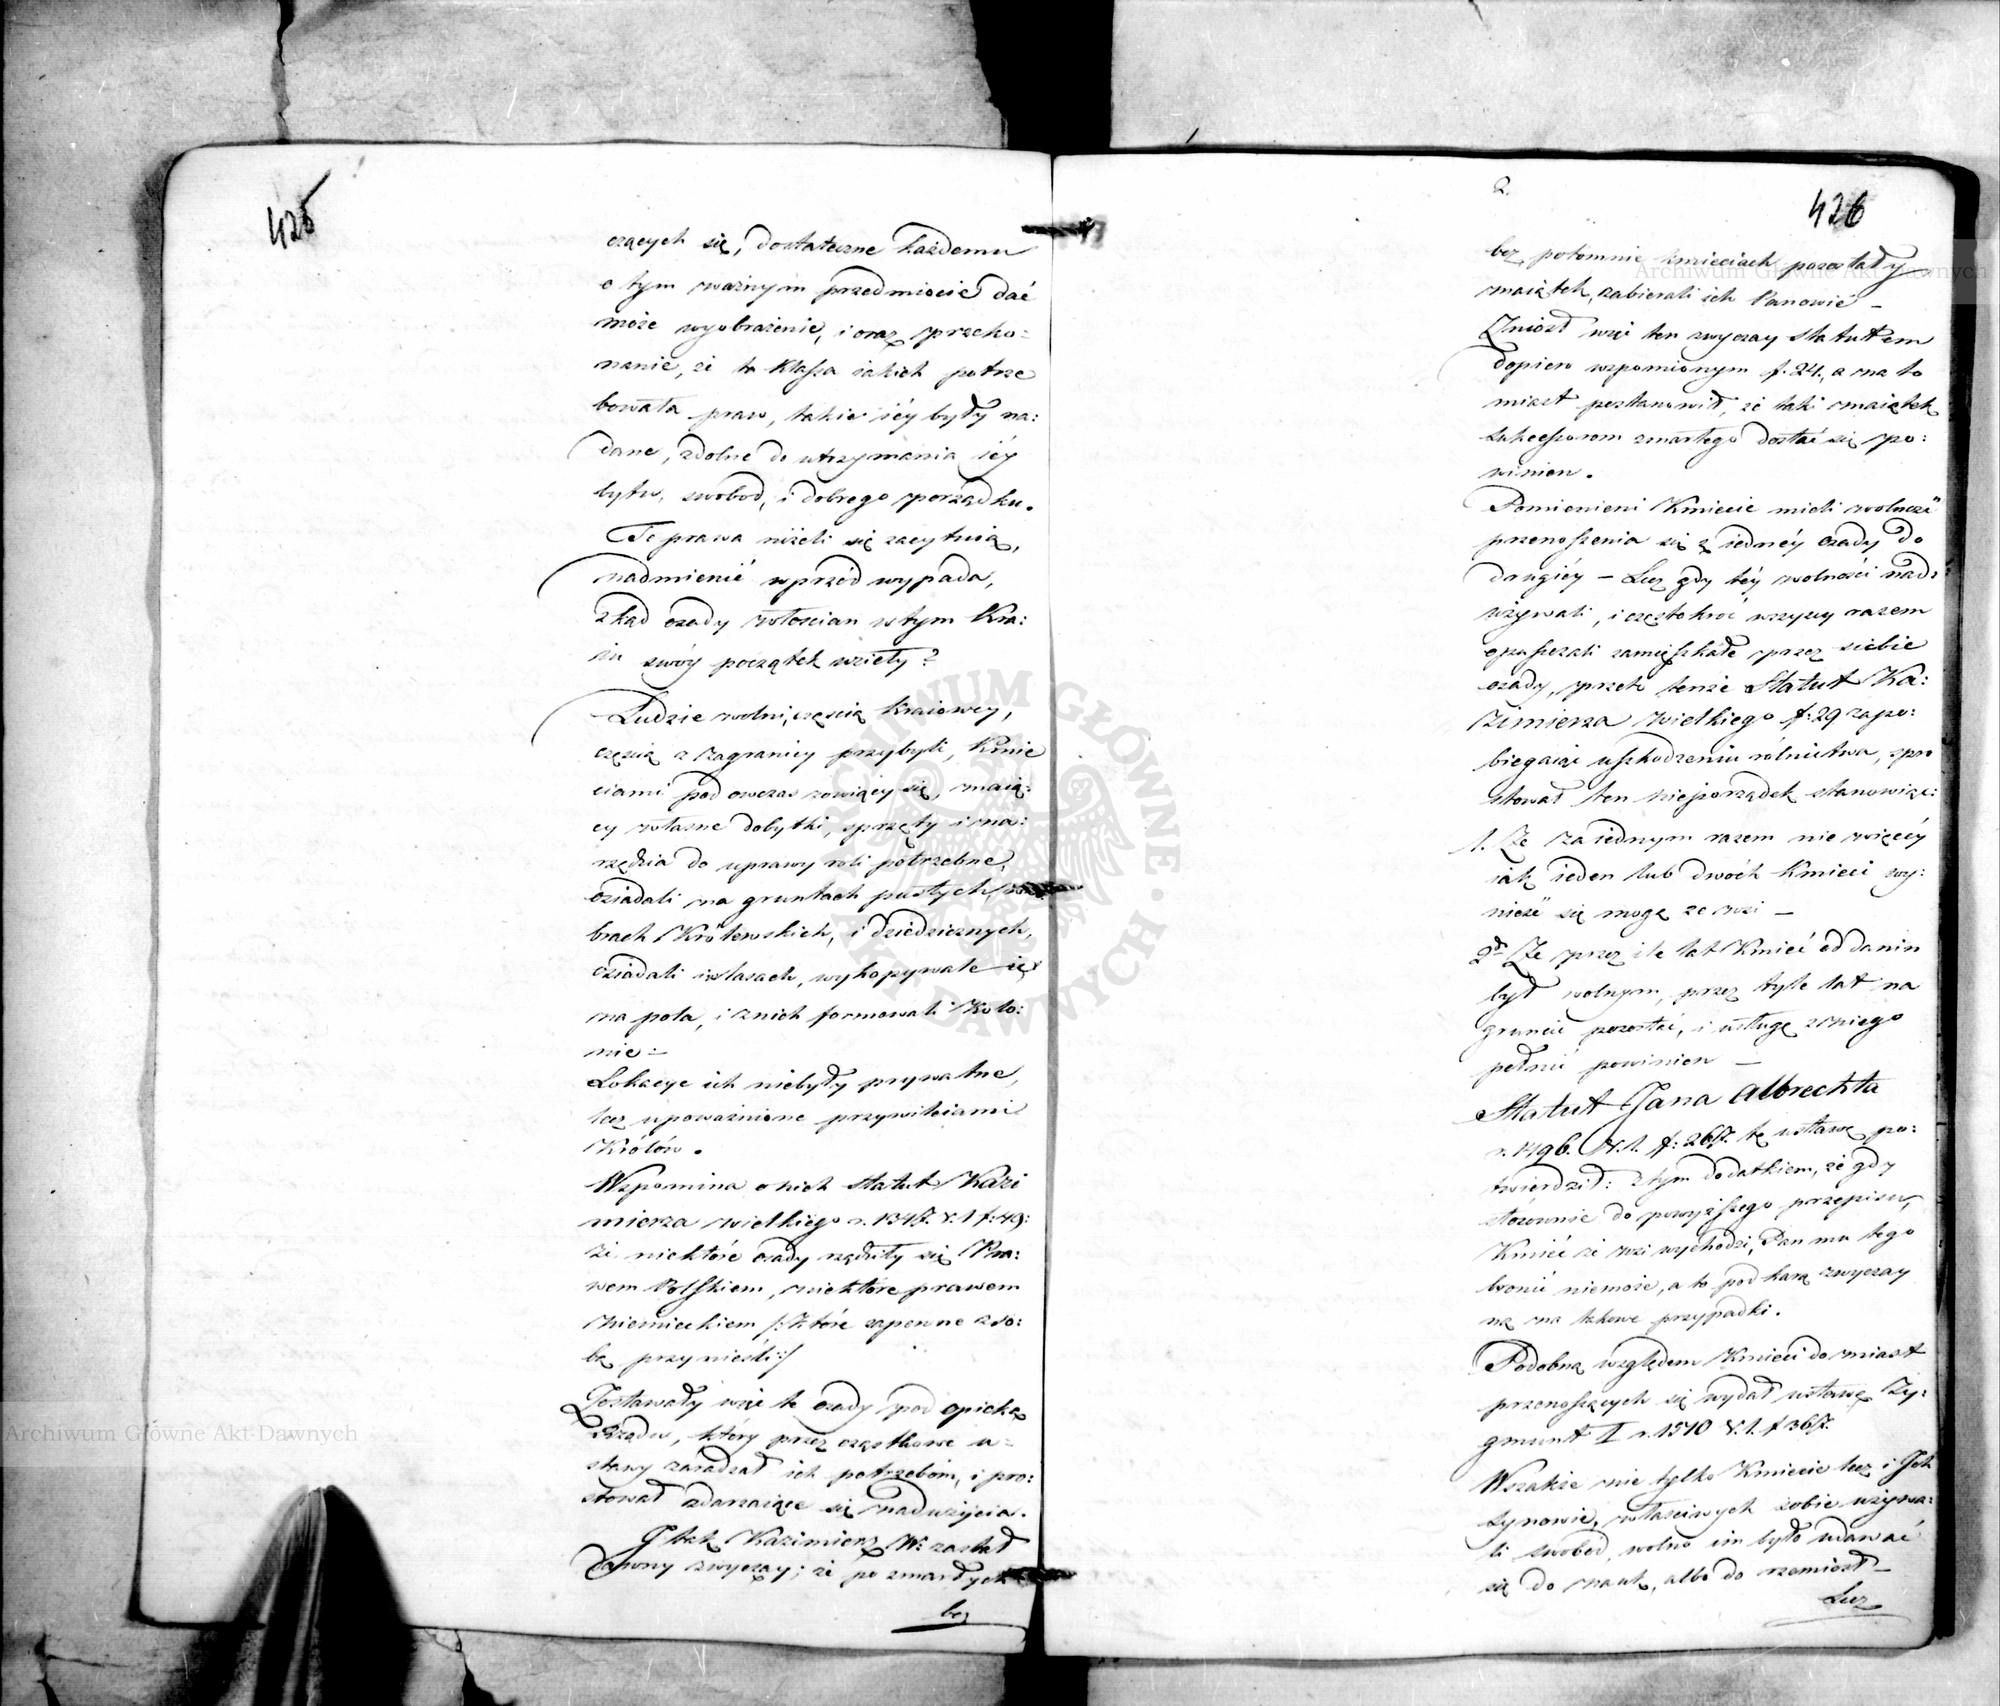 425
czących się, dostateczne każdemu
o tym ważnym przedmiocie dać
może wyobrażenie, i oraz przeko:
nanie, że ta Klassa iakich potrze
bowała praw, takie iéy były na:
dane, zdolne do utrzymania iéy
bytu, swobod, i dobrego porządku.
Te prawa niżeli się zacytuią,
nadmienić wprzód wypada,
zkąd osady włościan w tym Kra:
iu swóy początek wzieły?
Ludzie wolni, częścią kraiowcy,
częścią z zagranicy przybyli, Kmie
ciami pod owczas zowiący się, maią:
cy własne dobytki, sprzęty i na:
rzędzia do uprawy roli potrzebne,
osiadali na gruntach pustych, w
brach Królewskich, i dziedzicznych,
osiadali w lasach, wykopywali ie
na pola, i z nich formowali Kolo:
nie –
Lokacye ich niebyły prywatne,
lecz upoważnione przywileiami
Królów.
Wspomina o nich Statut Kazi
mierza wielkiego r. 1347. V. 1 f: 49:
że niektóre osady rządziły się Pra:
wem Polskiem, niektóre prawem
niemieckiem /: które zapewne z so:
bą przynieśli :/
Zostawały więc te osady pod opieką
Rządu, który przez cząstkowe u=
stawy zaradzał ich potrzebom, i pro:
stował zdarzaiące się nadużycia.
I tak Kazimierz W: zastał
dawny zwyczay; że po zmarłych
bez
2.
426
bez potomnie kmieciach pozostały
maiątek, zabierali ich Panowie –
Zniósł więc ten zwyczay Statutem
dopiero wspomionym f. 24., a na to
miast postanowił, że taki maiątek
sukcessorom zmarłego dostać się po:
winien.
Pomienieni Kmiecie mieli wolność
przenoszenia się z iednéy osady do
drugiéy – Lecz gdy téy wolności nad:
używali, i częstokroć wszyscy razem
opuszczali zamięszkałe przez siebie
osady, przeto tenże Statut Ka:
zimierza wielkiego f: 29 zapo:
biegaiąc uszkodzeniu rolnictwa, spro
stował ten nieporządek stanowiąc:
1. Że za iednym razem nie więcéy
iak ieden lub dwóch Kmieci wy:
nieść się mogą ze wsi –
2re Że przez ile lat Kmieć od danin
był wolnym, przez tyle lat na
gruncie pozostać, i usługę z niego
pełnić powinien –
Statut Jana Albrechta
r. 1496. V. 1. f: 267. tę ustawę po:
twierdził: z tym dodatkiem, że gdy
stosownie do powyższego przepisu,
Kmieć ze wsi wychodzi, Pan mu tego
bronić niemoże, a to pod karą zwyczay
ną na takowe przypadki.
Podobną względem Kmieci do miast
przenoszących się wydał ustawę Zy:
gmunt I r. 1510 V. 1. f 367.
Wszakże nie tylko Kmiecie lecz i Ich
Synowie, właściwych sobie używa:
li swobod, wolno im było udawać
się do nauk, albo do rzemiosł –
Lecz
Archiwum Główne Akt Dawnych
Archiwum Główne Akt Dawnych
ARCHIWUM GŁÓWNE AKT DAWNYCH